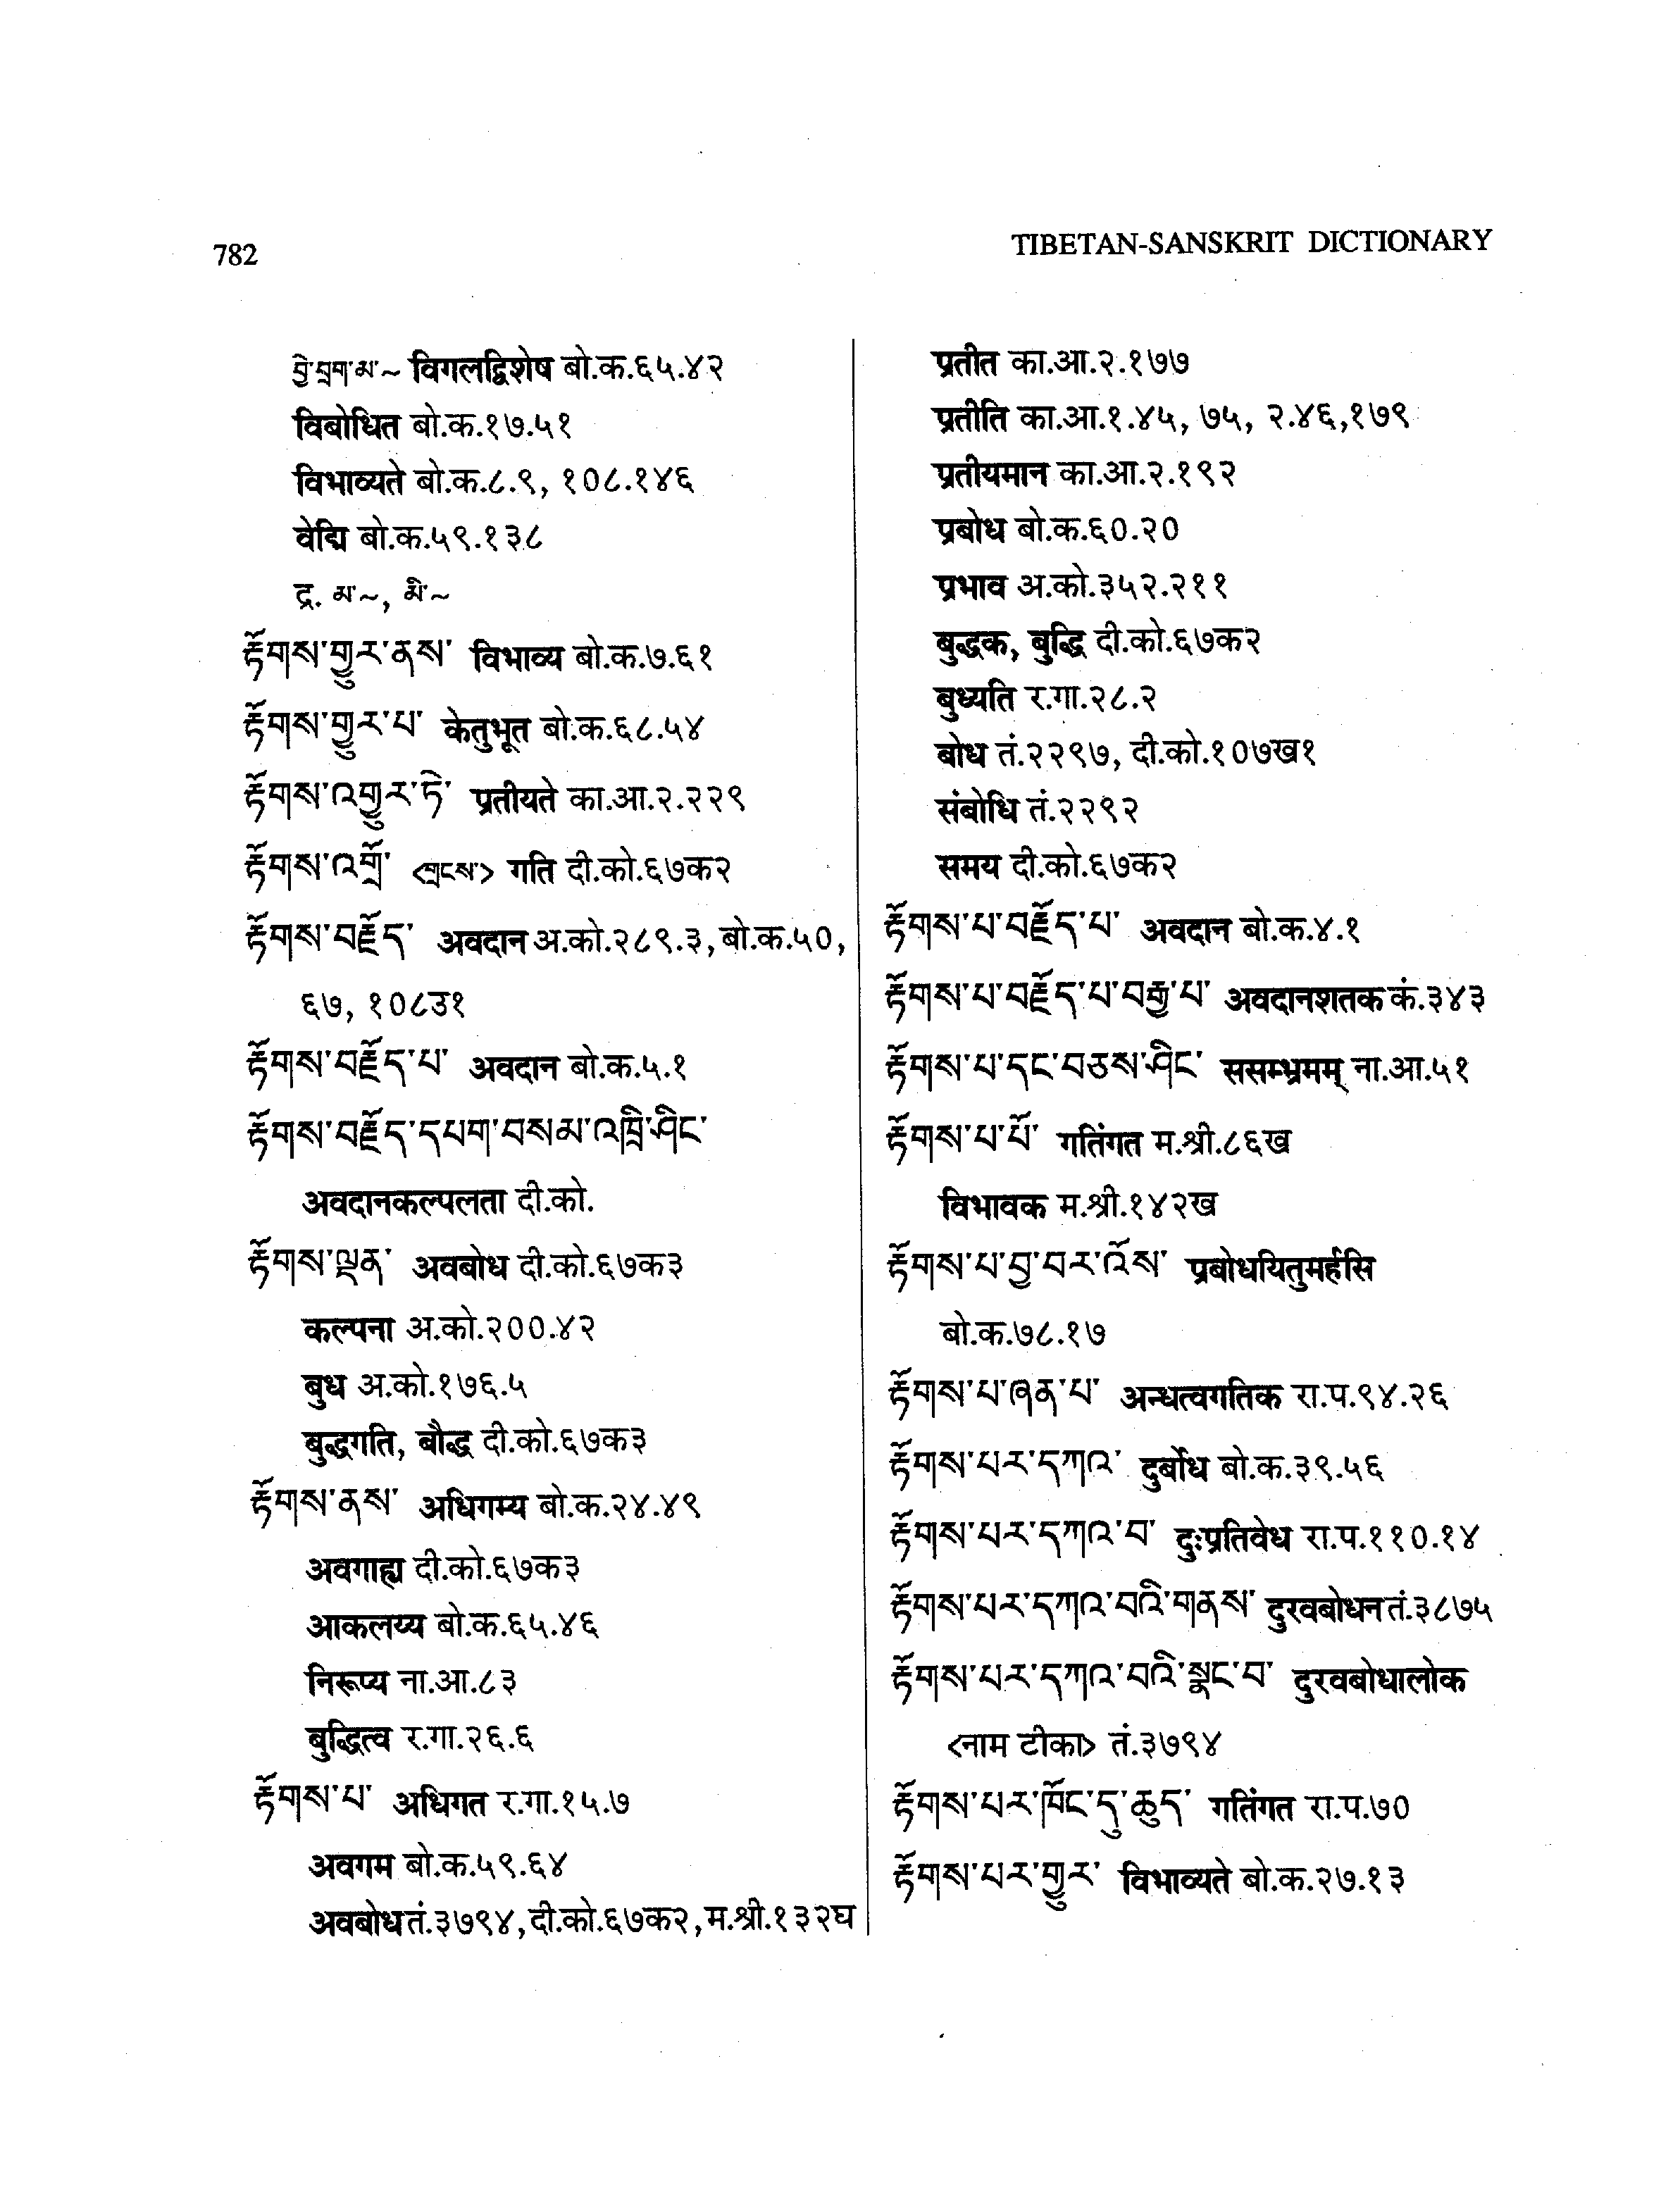 782
TIBETAN-SANSKRIT DICTIONARY
བྱེ་བྲག་མ་~ विगलद्विशेष बो.क.६५.४२
विबोधित बो.क.१७.५१
विभाव्यते बो.क.८.९, १०८.१४६
वेद्मि बो.क.५९.१३८
द्र. མ་~, མི་~
རྟོགས་གྱུར་ནས་ विभाव्य बो.क.७.६१
རྟོགས་གྱུར་པ་ केतुभूत बो.क.६८.५४
རྟོགས་འགྱུར་ཏེ་ प्रतीयते का.आ.२.२२९
རྟོགས་འགྲོ་ <གྲངས་> गति दी.को.६७क२
རྟོགས་བརྗོད་ अवदान अ.को.२८९.३, बो.क.५०,
६७, १०८उ१
རྟོགས་བརྗོད་པ་ अवदान बो.क.५.१
རྟོགས་བརྗོད་དཔག་བསམ་འཁྲི་ཤིང་
अवदानकल्पलता दी.को.
རྟོགས་ལྡན་ अवबोध दी.को.६७क३
कल्पना अ.को.२००.४२
बुध अ.को.१७६.५
बुद्धगति, बौद्ध दी.को.६७क३
རྟོགས་ནས་ अधिगम्य बो.क.२४.४९
अवगाह्य दी.को.६७क३
आकलय्य बो.क.६५.४६
निरूप्य ना.आ.८३
बुद्धित्व र.गा.२६.६
རྟོགས་པ་ अधिगत र.गा.१५.७
अवगम बो.क.५९.६४
अवबोध तं.३७९४, दी.को.६७क२, म.श्री.१३२घ
प्रतीत का.आ.२.१७७
प्रतीति का.आ.१.४५, ७५, २.४६,१७९
प्रतीयमान का.आ.२.१९२
प्रबोध बो.क.६०.२०
प्रभाव अ.को.३५२.२११
बुद्धक, बुद्धि दी.को.६७क२
बुध्यति र.गा.२८.२
बोध तं.२२९७, दी.को.१०७ख१
संबोधि तं.२२९२
समय दी.को.६७क२
རྟོགས་པ་བརྗོད་པ་ अवदान बो.क.४.१
རྟོགས་པ་བརྗོད་པ་བརྒྱ་པ་ अवदानशतक कं.३४३
རྟོགས་པ་དང་བཅས་ཤིང་ ससम्भ्रमम् ना.आ.५१
རྟོགས་པ་པོ་ गतिंगत म.श्री.८६ख
विभावक म.श्री.१४२ख
རྟོགས་པ་བྱ་བར་འོས་ प्रबोधयितुमर्हसि
बो.क.७८.१७
རྟོགས་པ་ཞན་པ་ अन्धत्वगतिक रा.प.९४.२६
རྟོགས་པར་དཀའ་ दुर्बोध बो.क.३९.५६
རྟོགས་པར་དཀའ་བ་ दुःप्रतिवेध रा.प.११०.१४
རྟོགས་པར་དཀའ་བའི་གནས་ दुरवबोधन तं.३८७५
རྟོགས་པར་དཀའ་བའི་སྣང་བ་ दुरवबोधालोक
<नाम टीका> तं.३७९४
རྟོགས་པར་ཁོང་དུ་ཆུད་ गतिंगत रा.प.७०
རྟོགས་པར་གྱུར་ विभाव्यते बो.क.२७.१३